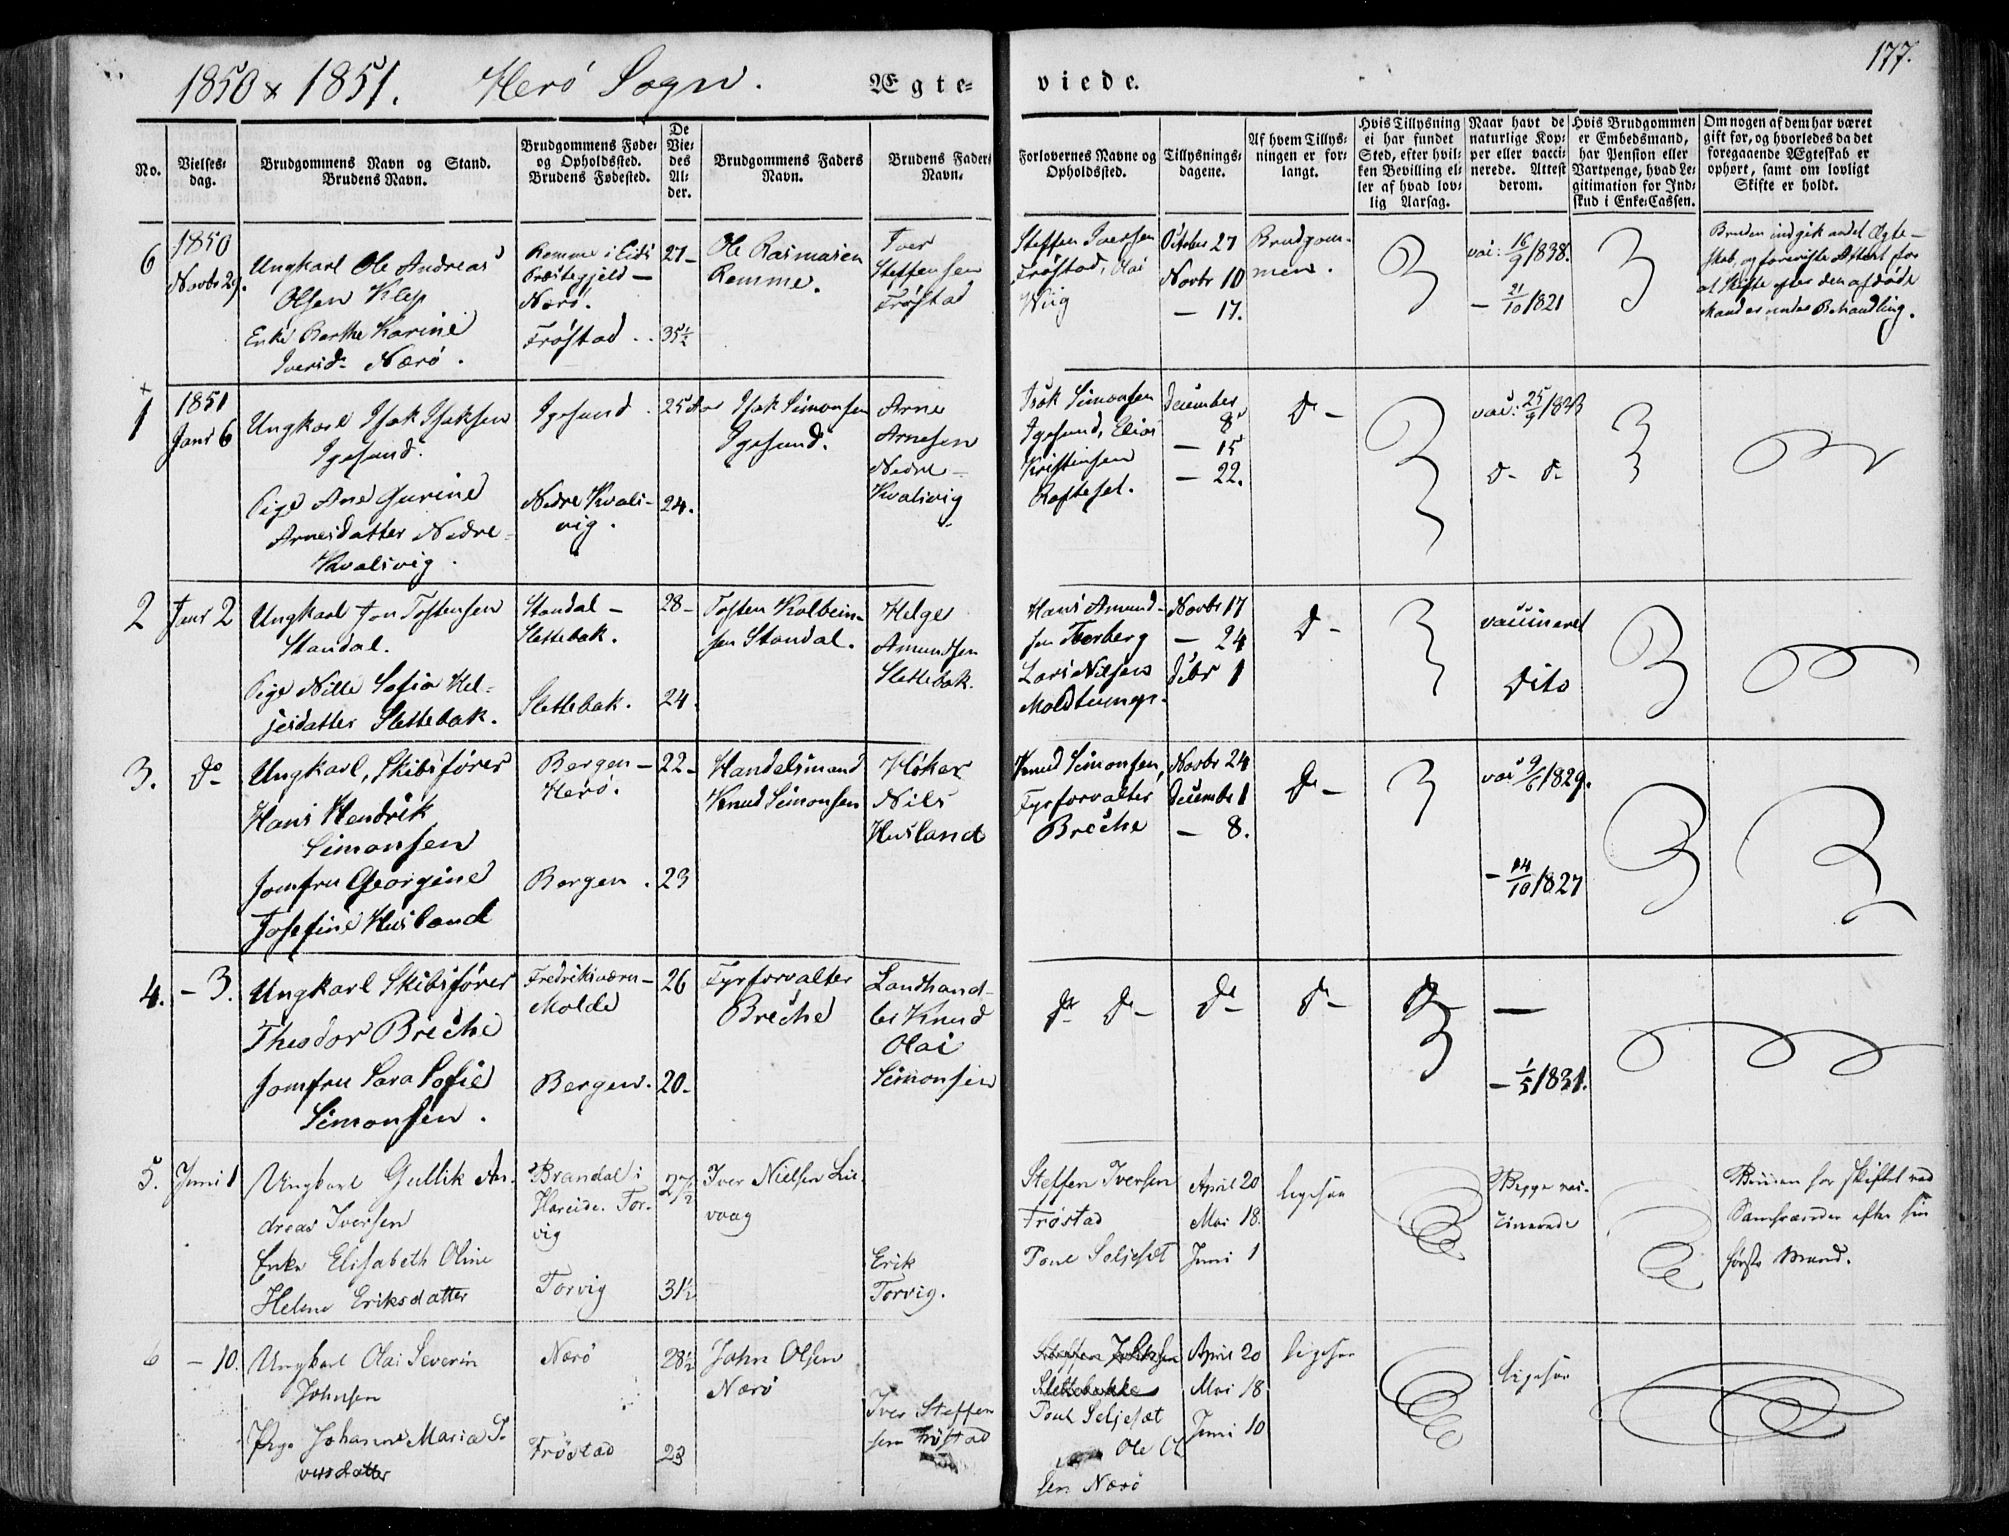 1850 & 1851. Herö Sogn. Ægte-
viede. 177.
No.
Vielses-
dag.
Brudgommens Navn og Stand.
Brudens Navn.
Brudgommens Føde-
og Opholdssted.
Brudens Fødested.
De
Vie-
des
Al-
der.
Brudgommens Faders
Navn.
Brudens Faders
Navn.
Forlovernes Navne og
Opholdssted.
Tillysnings-
dagene.
Af hvem Tillys-
ningen er for-
langt.
Hvis Tillysning
ei har fundet
Sted, efter hvil-
ken Bevilling el-
ler af hvad lov-
lig Aarsag.
Naar havt de
naturlige Kop-
per eller vacci-
nerede. Attest
derom.
Hvis Brudgommen
er Embedsmand,
har Pension eller
Vartpenge, hvad Le-
gitimation for Ind-
skud i Enke-Cassen.
Om nogen af dem har været
gift før, og hvorledes da det
foregaaende Ægteskab er
ophørt, samt om lovligt
Skifte er holdt.
6
1850
Novbr 29.
Ungkarl Ole Andreas
Olsen Klep
Enke Berthe Karine
Iversd. Nærö.
Remme i Eids
Præstegjeld -
Nærö.
Fröstad.
27-
35½
Ole Rasmusen
Remme.
Iver
Steffensen
Fröstad
Steffen Iversen
Fröstad, Olai
Wiig
October 27
Novbr 10
- 17.
Brudgom-
men.
vac: 16/9 1838.
- 21/10 1821
Bruden indgik andet Ægte-
skab, og foreviste Attest for
at Skifte efter den afdöde
Mand er under Behandling.
1
1851
Janr 6
Ungkarl Isak Isaksen
Igesund.
Pige Ane Gurine
Arnesdatter Nedre-
Kvalsvig.
Igesund.
Nedre Kvals-
vig.
25 Aar
24.
Isak Simonsen
Igesund.
Arne
Arnesen
Nedre-
Kvalsvig
Isak Simonsen
Igesund, Elias
Kristensen
Rafteset.
December
8
- 15
- 22.
D-
vac: 25/9 1833
D- D-
2
Janr 2
Ungkarl Jon Tostensen
Standal.
Pige Nille Sofia Hel-
jesdatter Slettebak.
Standal -
Slettebak.
Slettebak.
28-
24.
Tosten Kolbein-
sen Standal.
Helge
Amundsen
Slettebak.
Hans Amund-
sen Torberg
Lars Nilsen
Moldtu
Novbr 17
- 24
Debr 1
D-
vaccineret
Dito
3.
Do
Ungkarl, Skibsförer
Hans Hendrik
Simonsen
Jomfru Georgine
Josefine Husland
Bergen -
Herö.
Bergen.
22-
23
Handelsmand
Knud Simonsen
Höker
Nils
Husland
Knud Simonsen,
Fyrforvalter
Breche
Novbr 24
Decembr 1
- 8.
D-
vac 9/6 1829.
- 14/10 1827
4.
- 3.
Ungkarl Skibsförer
Theodor Breche
Jomfru Sara Sofie
Simonsen.
Fredriksværn-
Molde
Bergen.
26
20-
Fyrforvalter
Breche
Landhand-
ler Knud
Olai
Simonsen
D- D- D- D- D- -
- 1/5 1831.
5.
Juni 1
Ungkarl Gullik An-
dreas Iversen
Enke Elisabeth Oline
Helene Eriksdatter
Brandal i
Hareide. Tor-
vig
Torvig
27½
31½
Iver Nielsen Lii-
vaag
Erik
Torvig.
Steffen Iversen
Fröstad
Poul Seljesæt
April 20
Mai 18.
Juni 1
ligesaa
Begge vac-
cinerede
Bruden har skiftet med
Samfrænder efter sin
förste Mand.
6
- 10.
Ungkarl Olai Severin
Johnsen
Pige Johanne Maria I-
versdatter
Nærö
Fröstad
28½
23
John Olsen
Nærö
Iver Steffen
sen Fröstad
Slettebakke
Poul Seljesæt
Ole Ol
sen Nærö
April 20
Mai 18
Juni 10
ligesaa
ligesaa